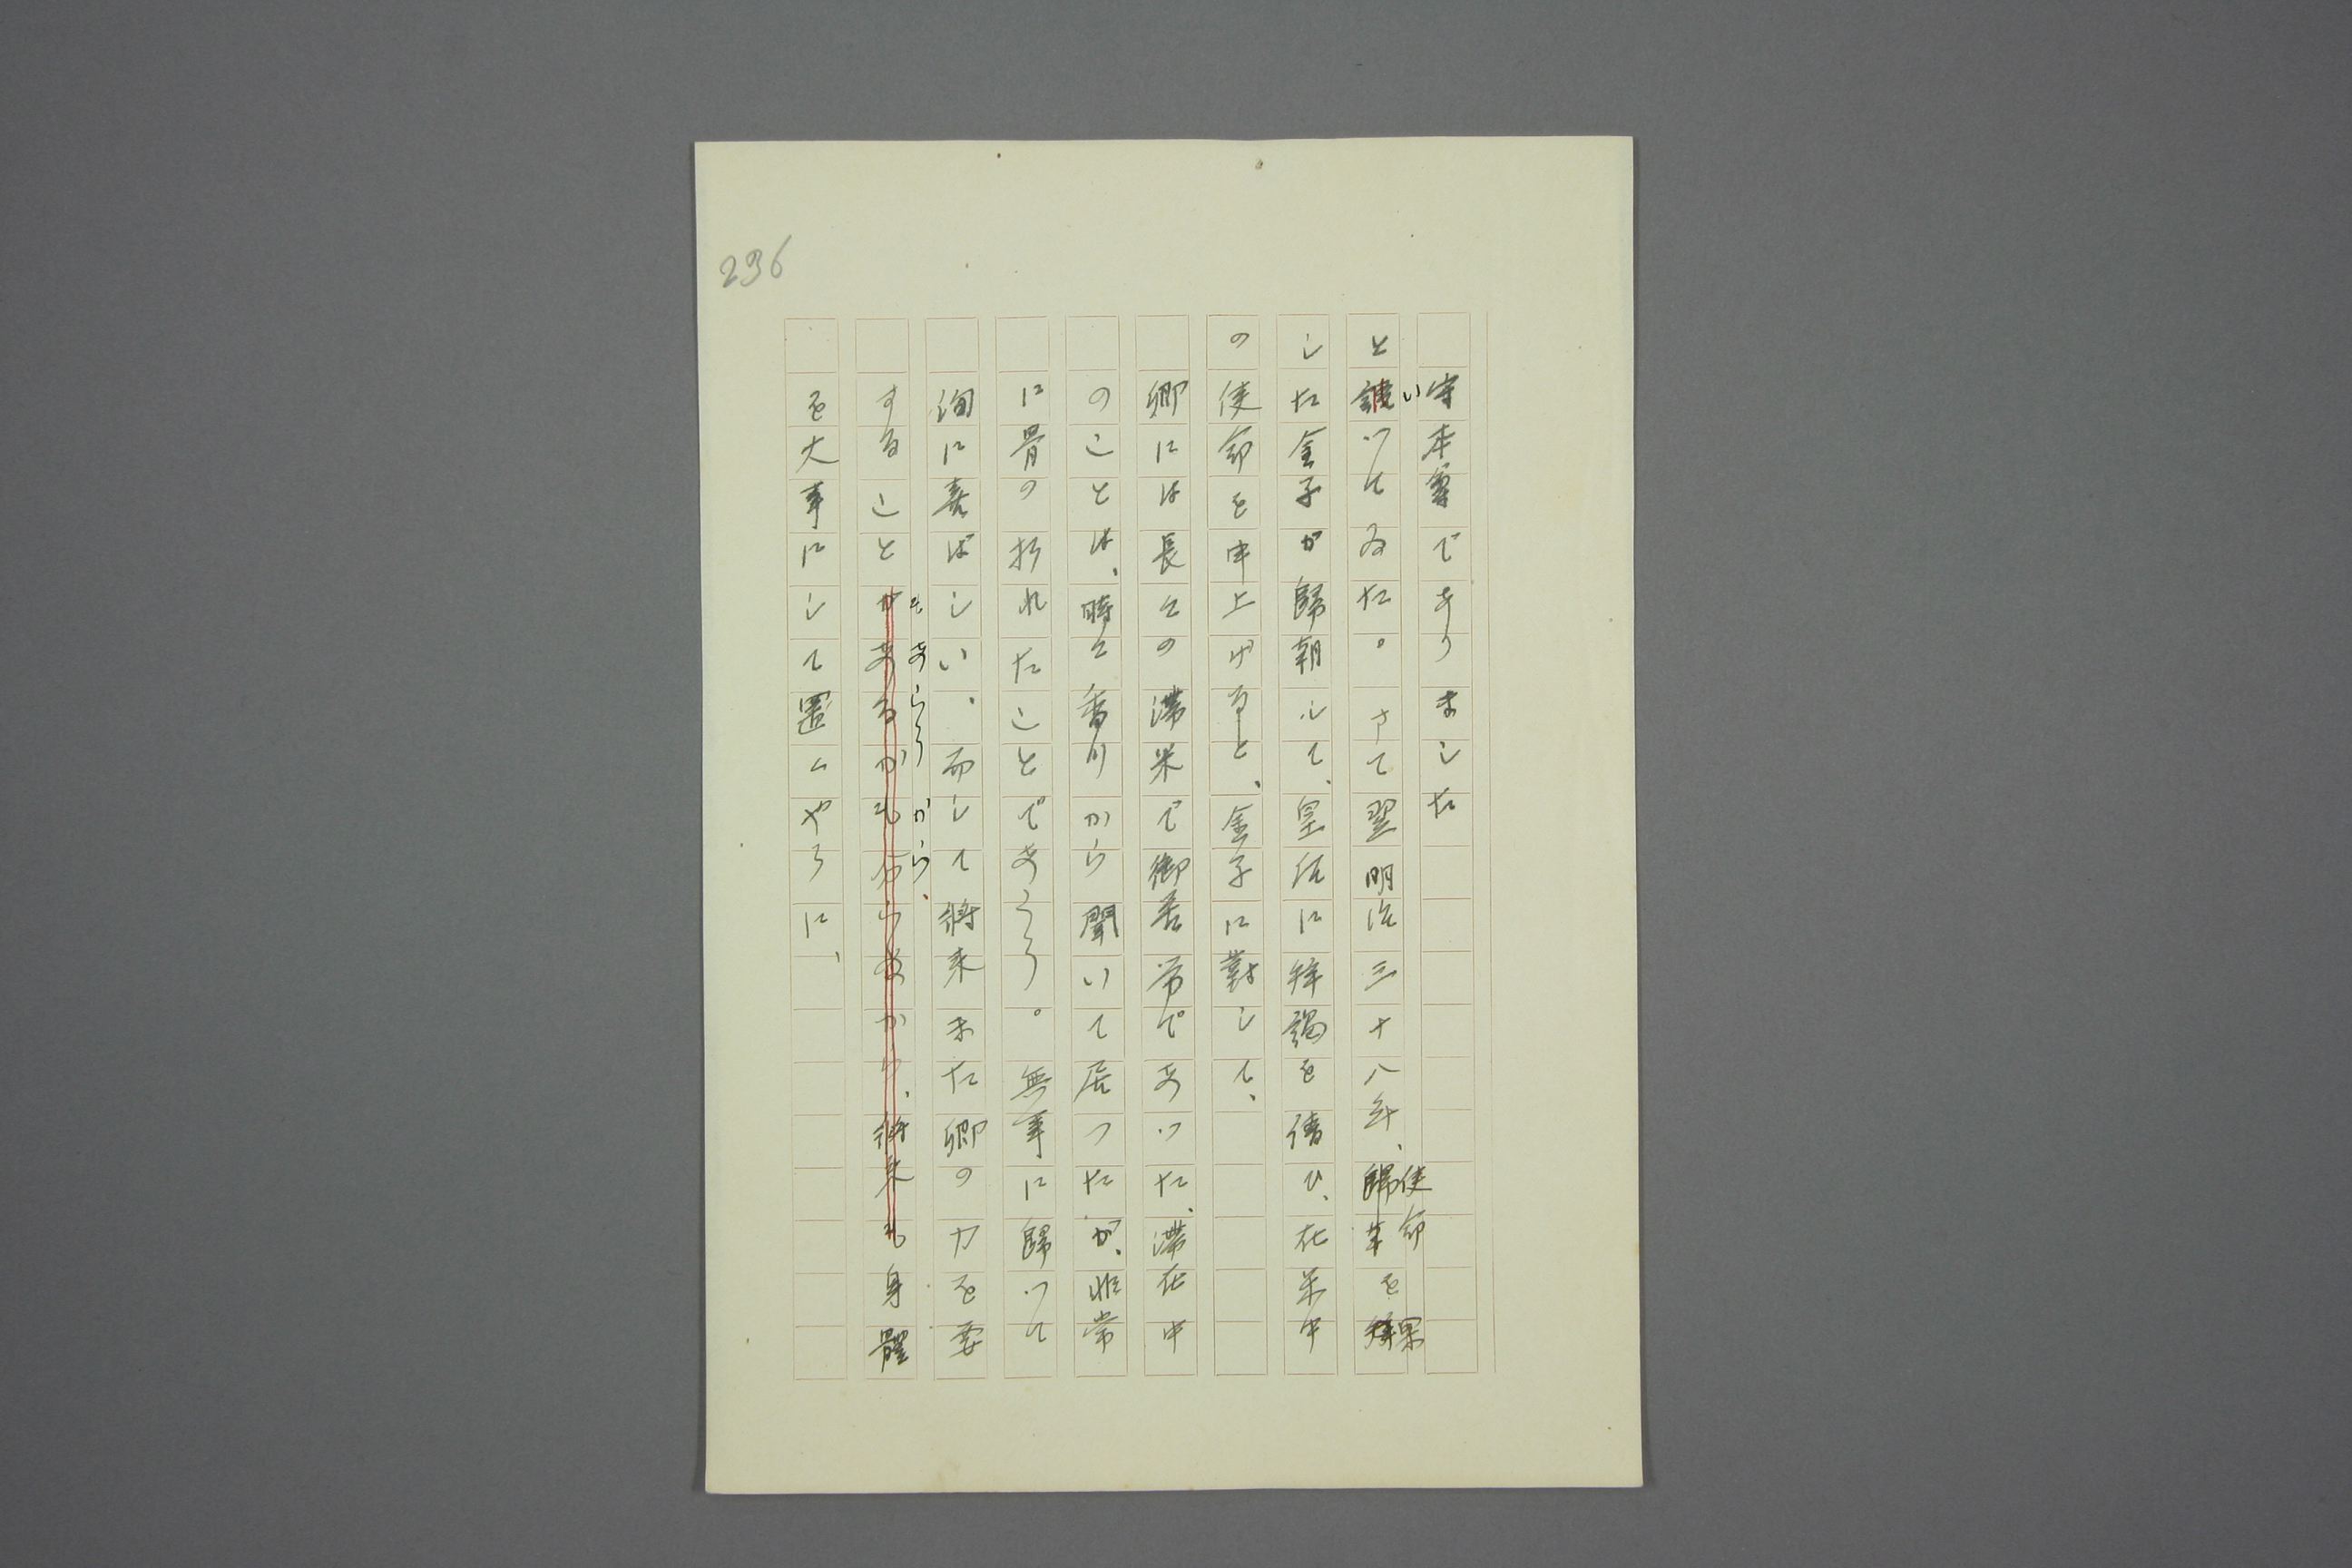 236
守本尊でありました
と謹いつてゐた。さて翌明治三十八年、使命を果
した金子が歸朝して、皇后に拜謁を儔ひ、在米中
の使命を申上げると、金子に對して、
卿には長々の滯米で御苦勞であつた、滯在中
のことは、時々香川から聞いて居つたが、非常
に骨の折れたことであらう。無事に歸つて
洵に喜ばしい、而して將來また卿の力を要
することもあらうから、
があるかも分らぬから、將來も身體
を大事にして置くやうに、